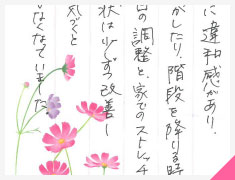 に違和感があり、
がしたり、階段を降りる時
の調整と、家でのストレッチ
状は少しずつ改善し
気づくと
なくなっていました。